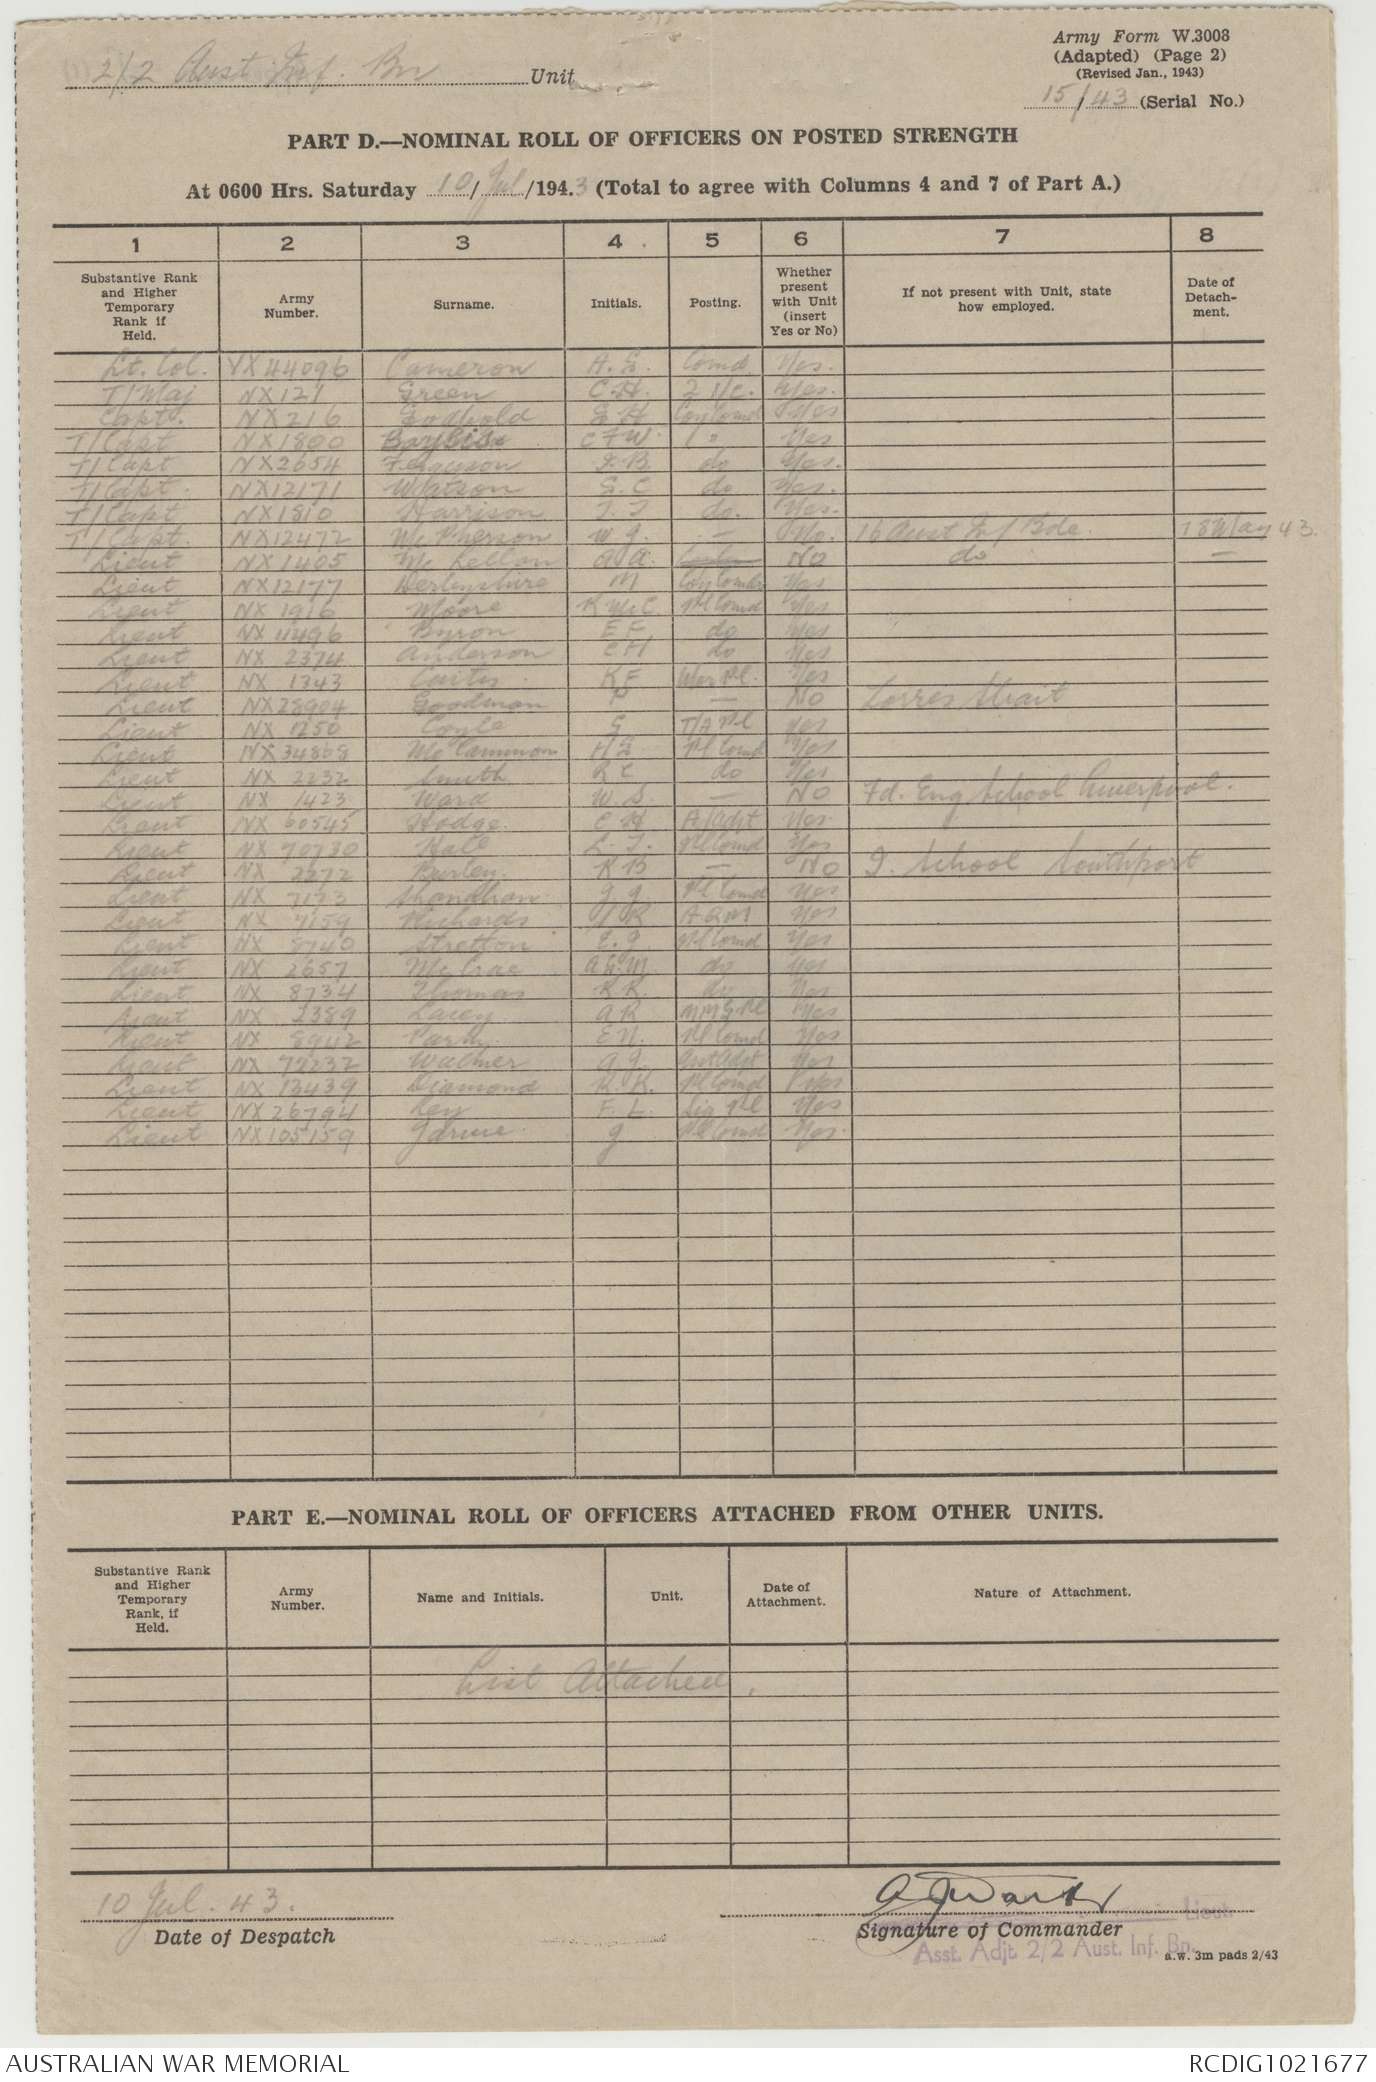 2/2 Aust Inf. Bn Unit
Army Form W.3008
(Adapted) (Page 2)
(Revised Jan., 1943)
15/43 (Serial No.)
PART D.—NOMINAL ROLL OF OFFICERS ON POSTED STRENGTH
At 0600 Hrs. Saturday 10/Jul/1943 (Total to agree with Columns 4 and 7 of Part A.)
1 2 3 4 5 6 7 8
Substantive Rank and Higher Temporary Rank if Held.
Army Number.
Surname.
Initials.
Posting.
Whether present with Unit (insert Yes or No)
If not present with Unit, state how employed.
Date of Detachment.
Lt. Col. VX44096 Cameron A.G. Comd Yes.
T/Maj NX121 Green C.H. 2 I/C. Yes.
Capt. NX216 Godbold G H Coy Comd Yes
T/Capt NX1800 C F W. Yes
T/Capt NX2654 Ferguson I.B. do Yes.
T/Capt. NX12171 Watson G.C do Yes.
T/Capt NX1810 Harrison do. Yes.
T/Capt. NX12472 McPherson W.J. — No. 16 Aust Inf Bde. 18 May 43.
Lieut NX1405 McLellan A A. No do —
Lieut NX12177 Derbyshire M Yes
Lieut NX 1916 Moore K McC. Pl Comd Yes
Lieut NX 4496 Byron E F do Yes
Lieut NX 2374 Anderson C H do Yes
Lieut NX 1343 K F Yes
Lieut NX28904 Goodman P — No Torres Strait
Lieut NX 1250 Coyle G T/A Pl Yes
Lieut NX34868 McCammon H G Pl Comd Yes
Lieut NX 2232 Smith R C do Yes
Lieut NX 1423 Ward W.S. — No Fd. Eng School Liverpool.
Lieut NX 60545 Hodge. C H A/Adjt Yes.
Lieut NX 70730 Hall L.T. Pl Comd Yes
Lieut NX 2272 Burley. K B — No I. School Southport
Lieut NX 7173 J J. Pl Comd Yes
Lieut NX 7159 Richards Yes
Lieut NX 8740 Stretton E.J. Pl Comd Yes
Lieut NX 2657 McCrae A G.M. do Yes
Lieut NX 8734 Thomas K.R. do Yes
Lieut NX 2389 Lacey A R MMG Pl Yes
Lieut NX 8942 E N. Pl Comd Yes
Lieut NX 79232 A J. Asst Adjt Yes
Lieut NX 13439 Diamond R.K. Pl Comd Yes
Lieut NX26794 Key F. L. Sig Pl Yes
Lieut NX105159 J Pl Comd Yes.
PART E.—NOMINAL ROLL OF OFFICERS ATTACHED FROM OTHER UNITS.
Substantive Rank and Higher Temporary Rank, if Held.
Army Number.
Name and Initials.
Unit.
Date of Attachment.
Nature of Attachment.
List Attached.
10 Jul. 43.
Date of Despatch
Signature of Commander
Lieut
Asst. Adjt 2/2 Aust. Inf. Bn.
a.w. 3m pads 2/43
AUSTRALIAN WAR MEMORIAL RCDIG1021677